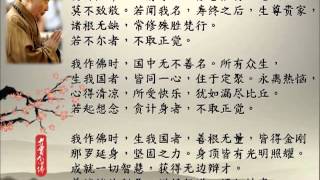 莫不致敬。若闻我名，寿终之后，生尊贵家，
诸根无缺，常修殊胜梵行。
若不尔者，不取正觉。
我作佛时，国中无不善名。所有众生，
生我国者，皆同一心，住于定聚。永离热恼，
心得清凉，所受快乐，犹如漏尽比丘。
若起想念，贪计身者，不取正觉。
我作佛时，生我国者，善根无量，皆得金刚
那罗延身，坚固之力。身顶皆有光明照耀。
成就一切智慧，获得无边辩才。